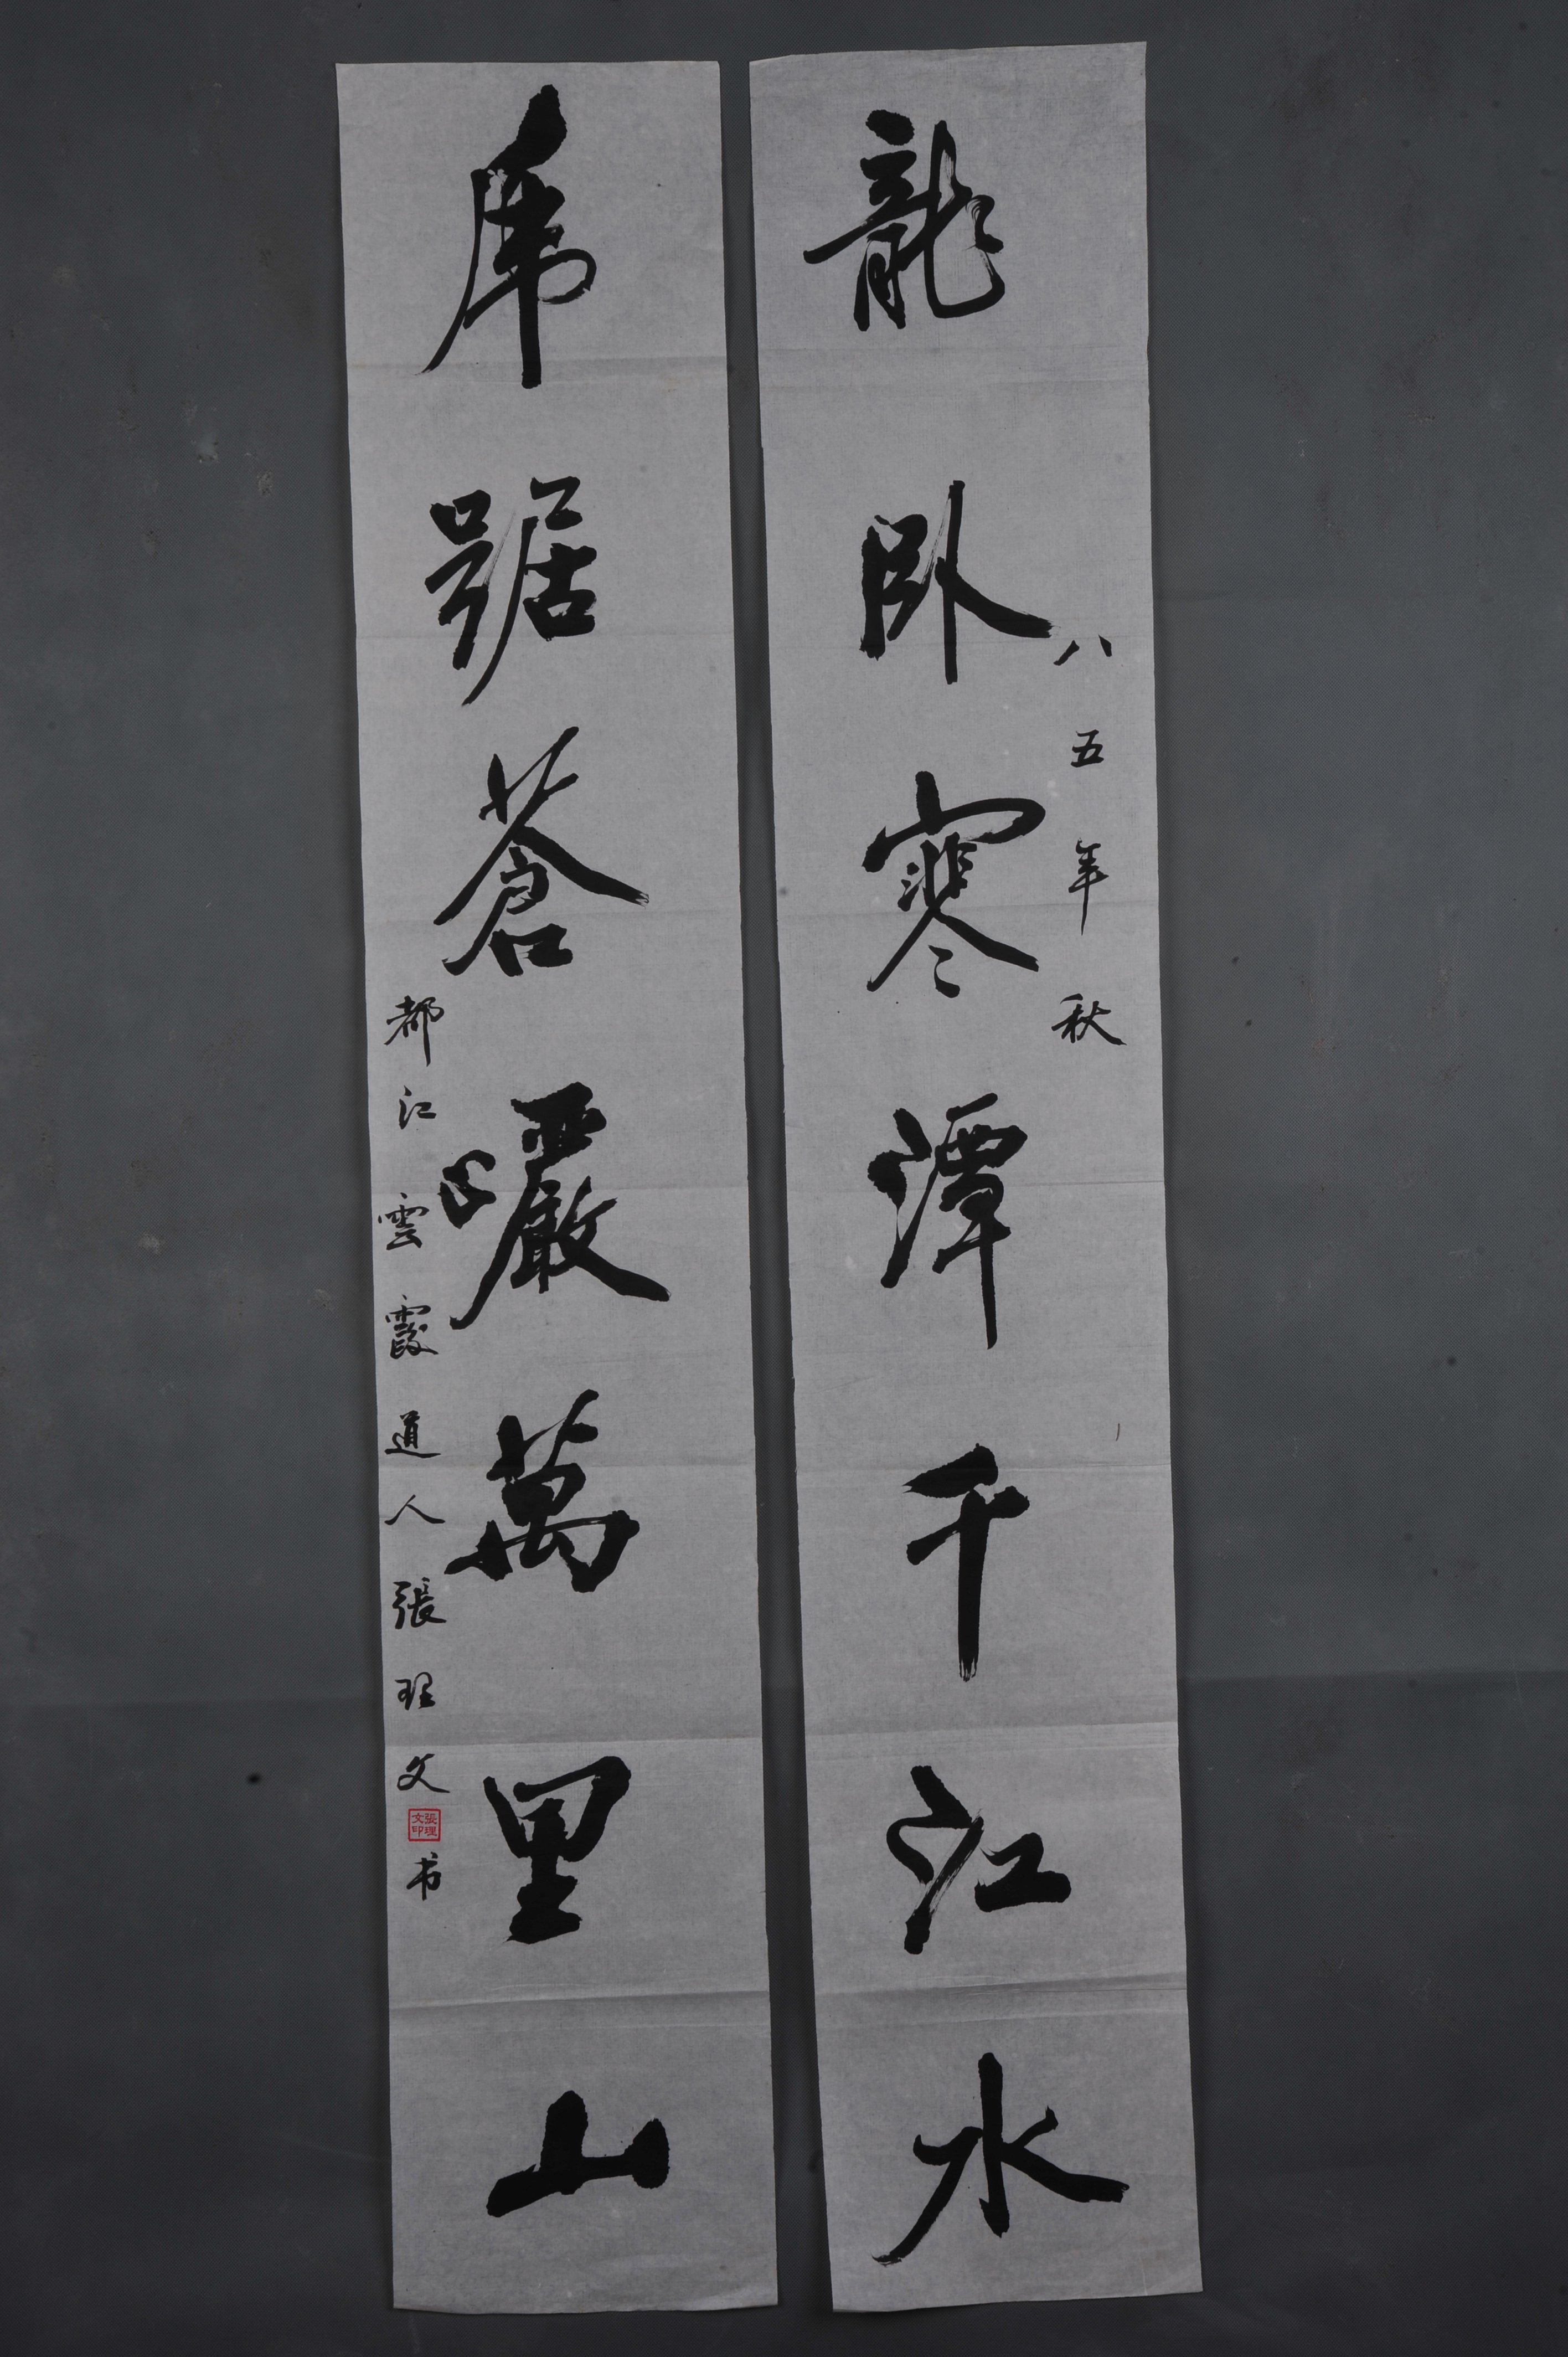 龍臥寒潭千江水
八五年秋
虎踞蒼巖萬里山
都江雲霞道人張理文书
張理文印